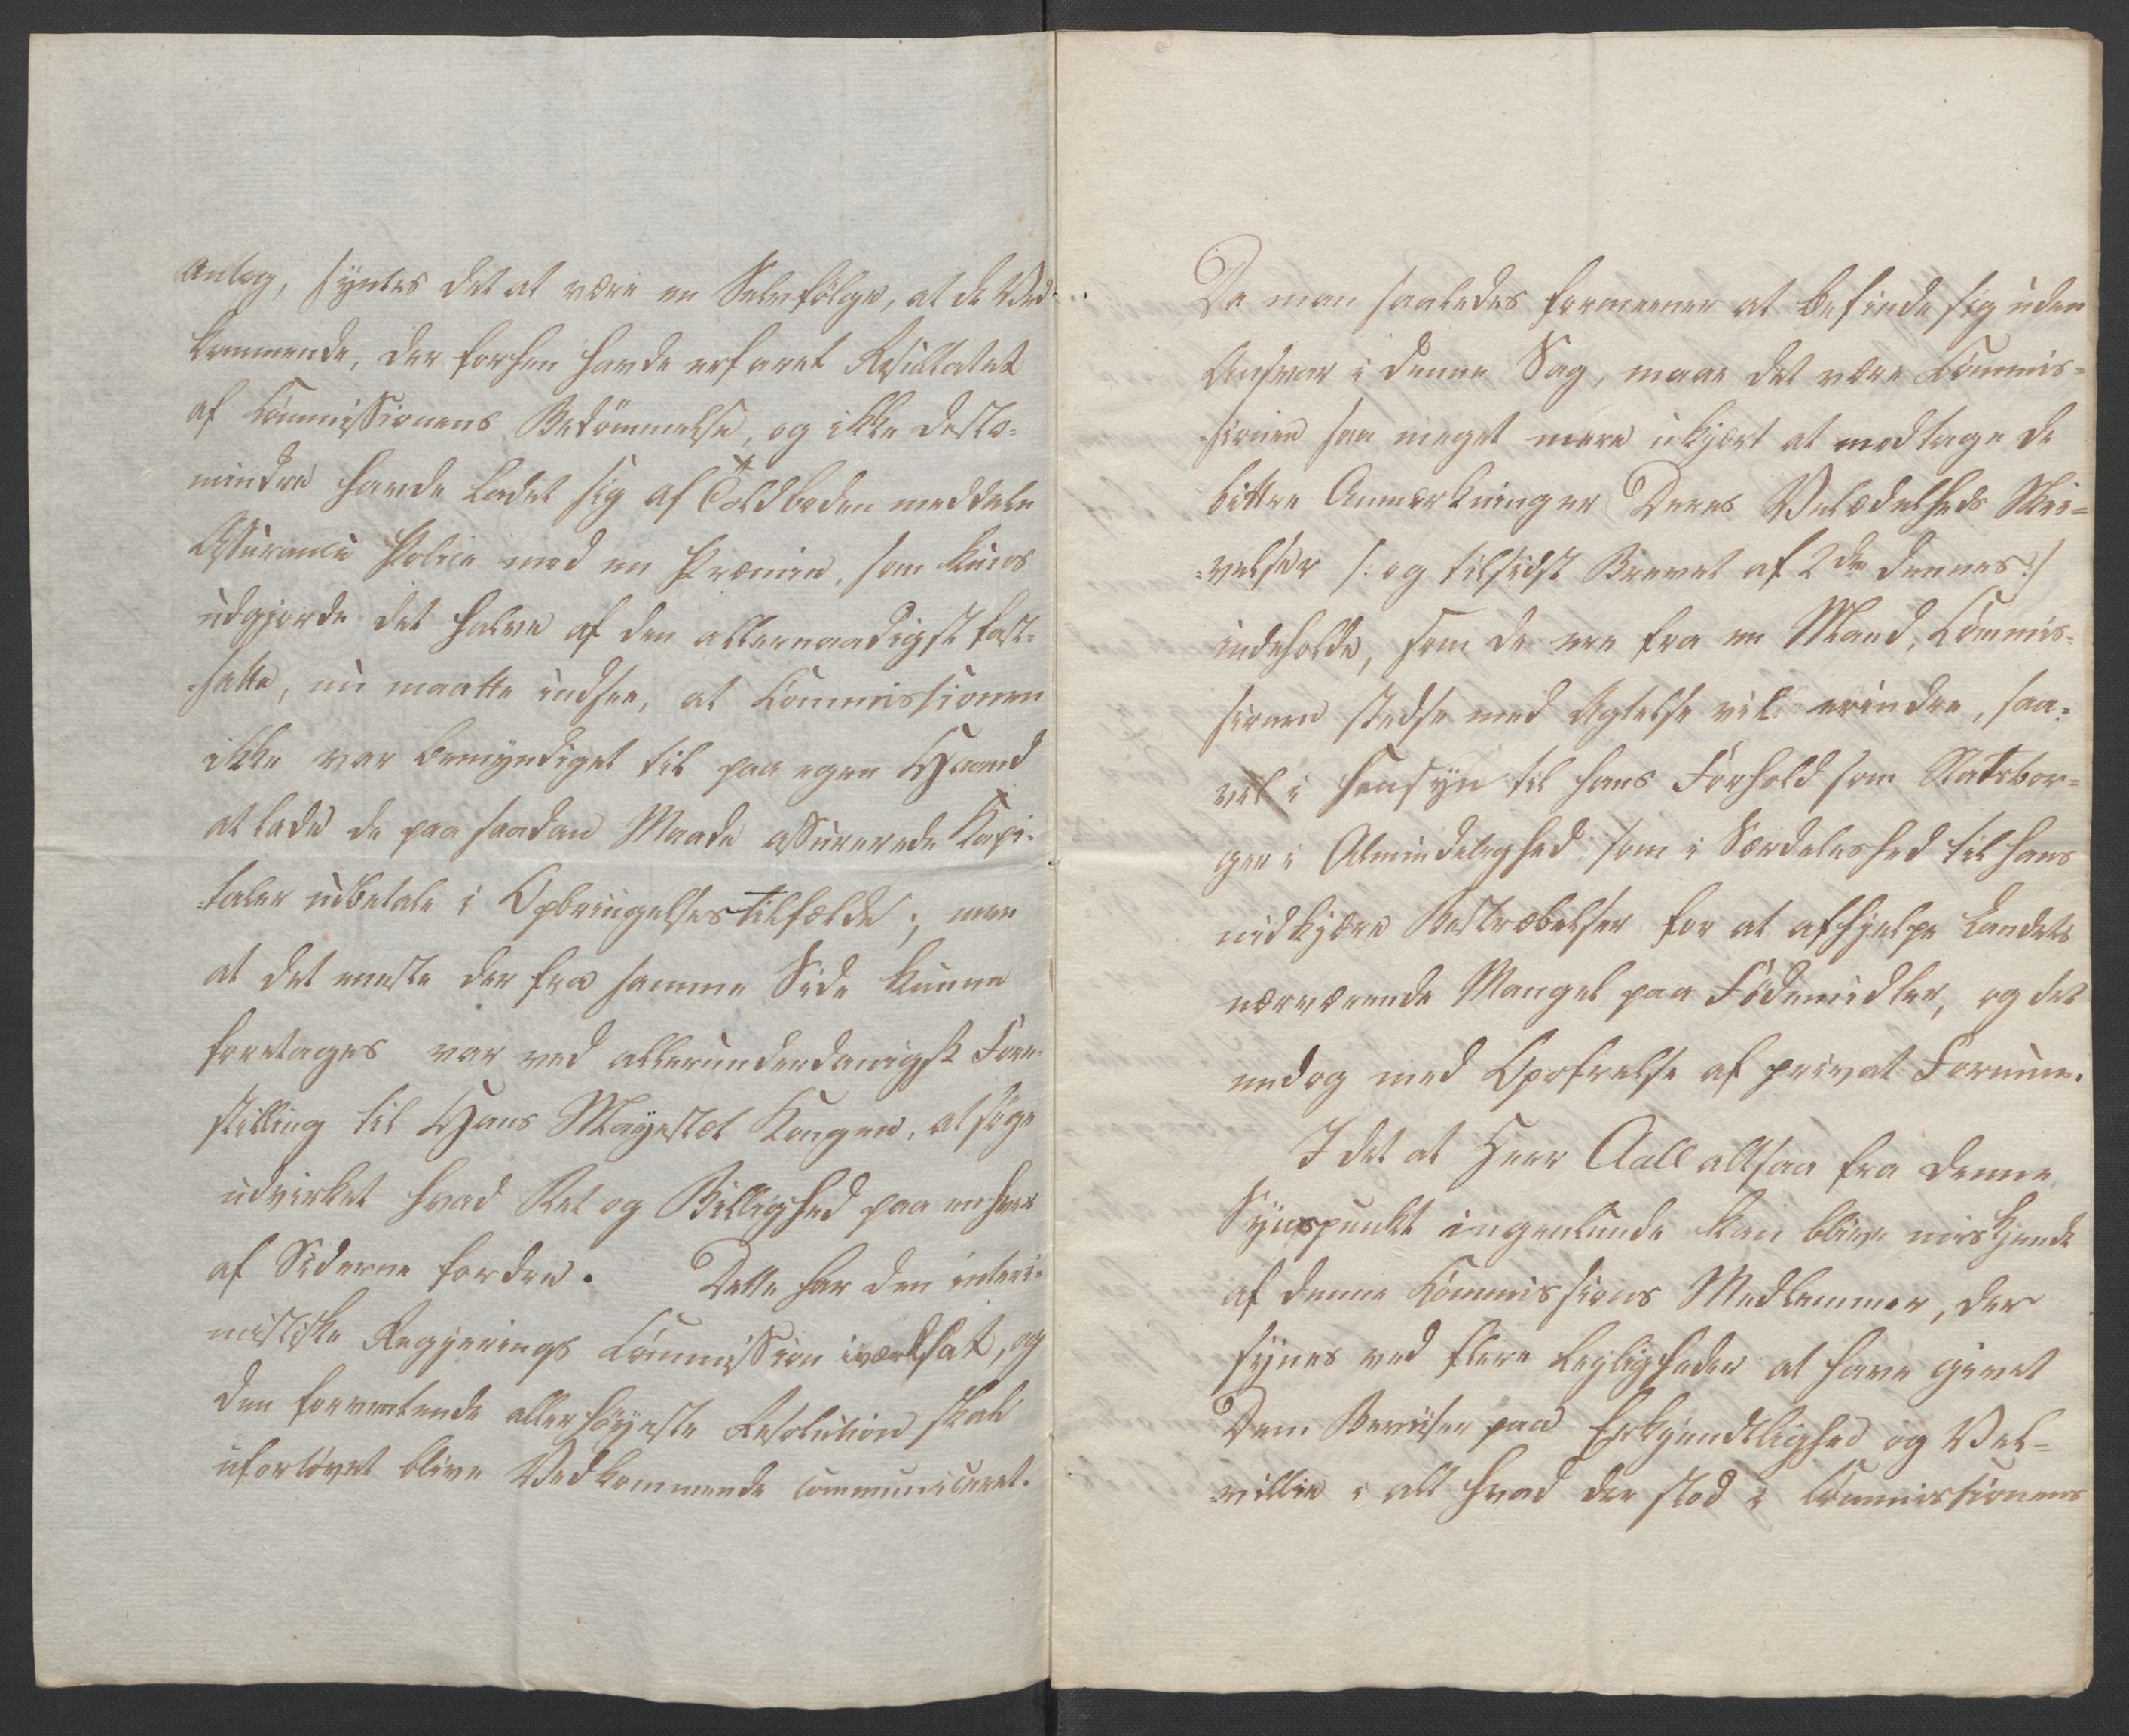 Antag, syntes det at være en Selvfölge, at de Ved-
kommende, der forhen havde erfaret Resultatet
af Commissionens Bedömmelse, og ikke desto-
mindre havde ladet sig af Toldboden meddele
Assurance Police med en Præmie, som kuns
udgjorde det halve af den allernaadigst fast-
-satte, nu maatte indsee, at Commissionen
ikke var bemyndiget til paa egen Haand
at lade de paa saadan Maade assurerede Kapi-
-taler udbetale i Opbringelsestilfælde; men
at det eneste der fra samme Side kunne
foretages var ved allerunderdanigst Fore-
stilling til Hans Mayestet Kongen, at söge
udvirket hvad Ret og Billighed paa enhver
af Siderne fordre. Dette har den interi-
mistiske Regjerings Commission iværksat, og
den forventende allerhöyeste Resolution skal
ufortövet blive Vedkommende communiceret.
Da man saaledes formeener at befinde sig uden
Ansvar i denne Sag, maae det være Commis-
-sionen saa meget mere ukjært at modtage de
bittre Anmærkninger Deres Velædelheds Skri-
-velser /: og tilsidst Brevet af 2de dennes :/
indeholde, som de ere fra en Mand, Commis-
sionen stedse med Agtelse vil erindre, saa-
vel i Hensyn til hans Forhold som Statsbor-
ger i Almindelighed, som i Særdeleshed til hans
nidkjære Bestræbelser for at afhjelpe Landets
nærværende Mangel paa Födemidler, og det
endog med Opofrelse af privat Formue.
I det at Herr Aall altsaa fra denne
Synspunkt ingenlunde kan blive miskjendt
af denne Commissions Medlemmer, der
synes ved flere Leyligheder at have givet
Dem Beviser paa Erkjendtlighed og Vel-
-villie i alt hvad der stod i Commissionens